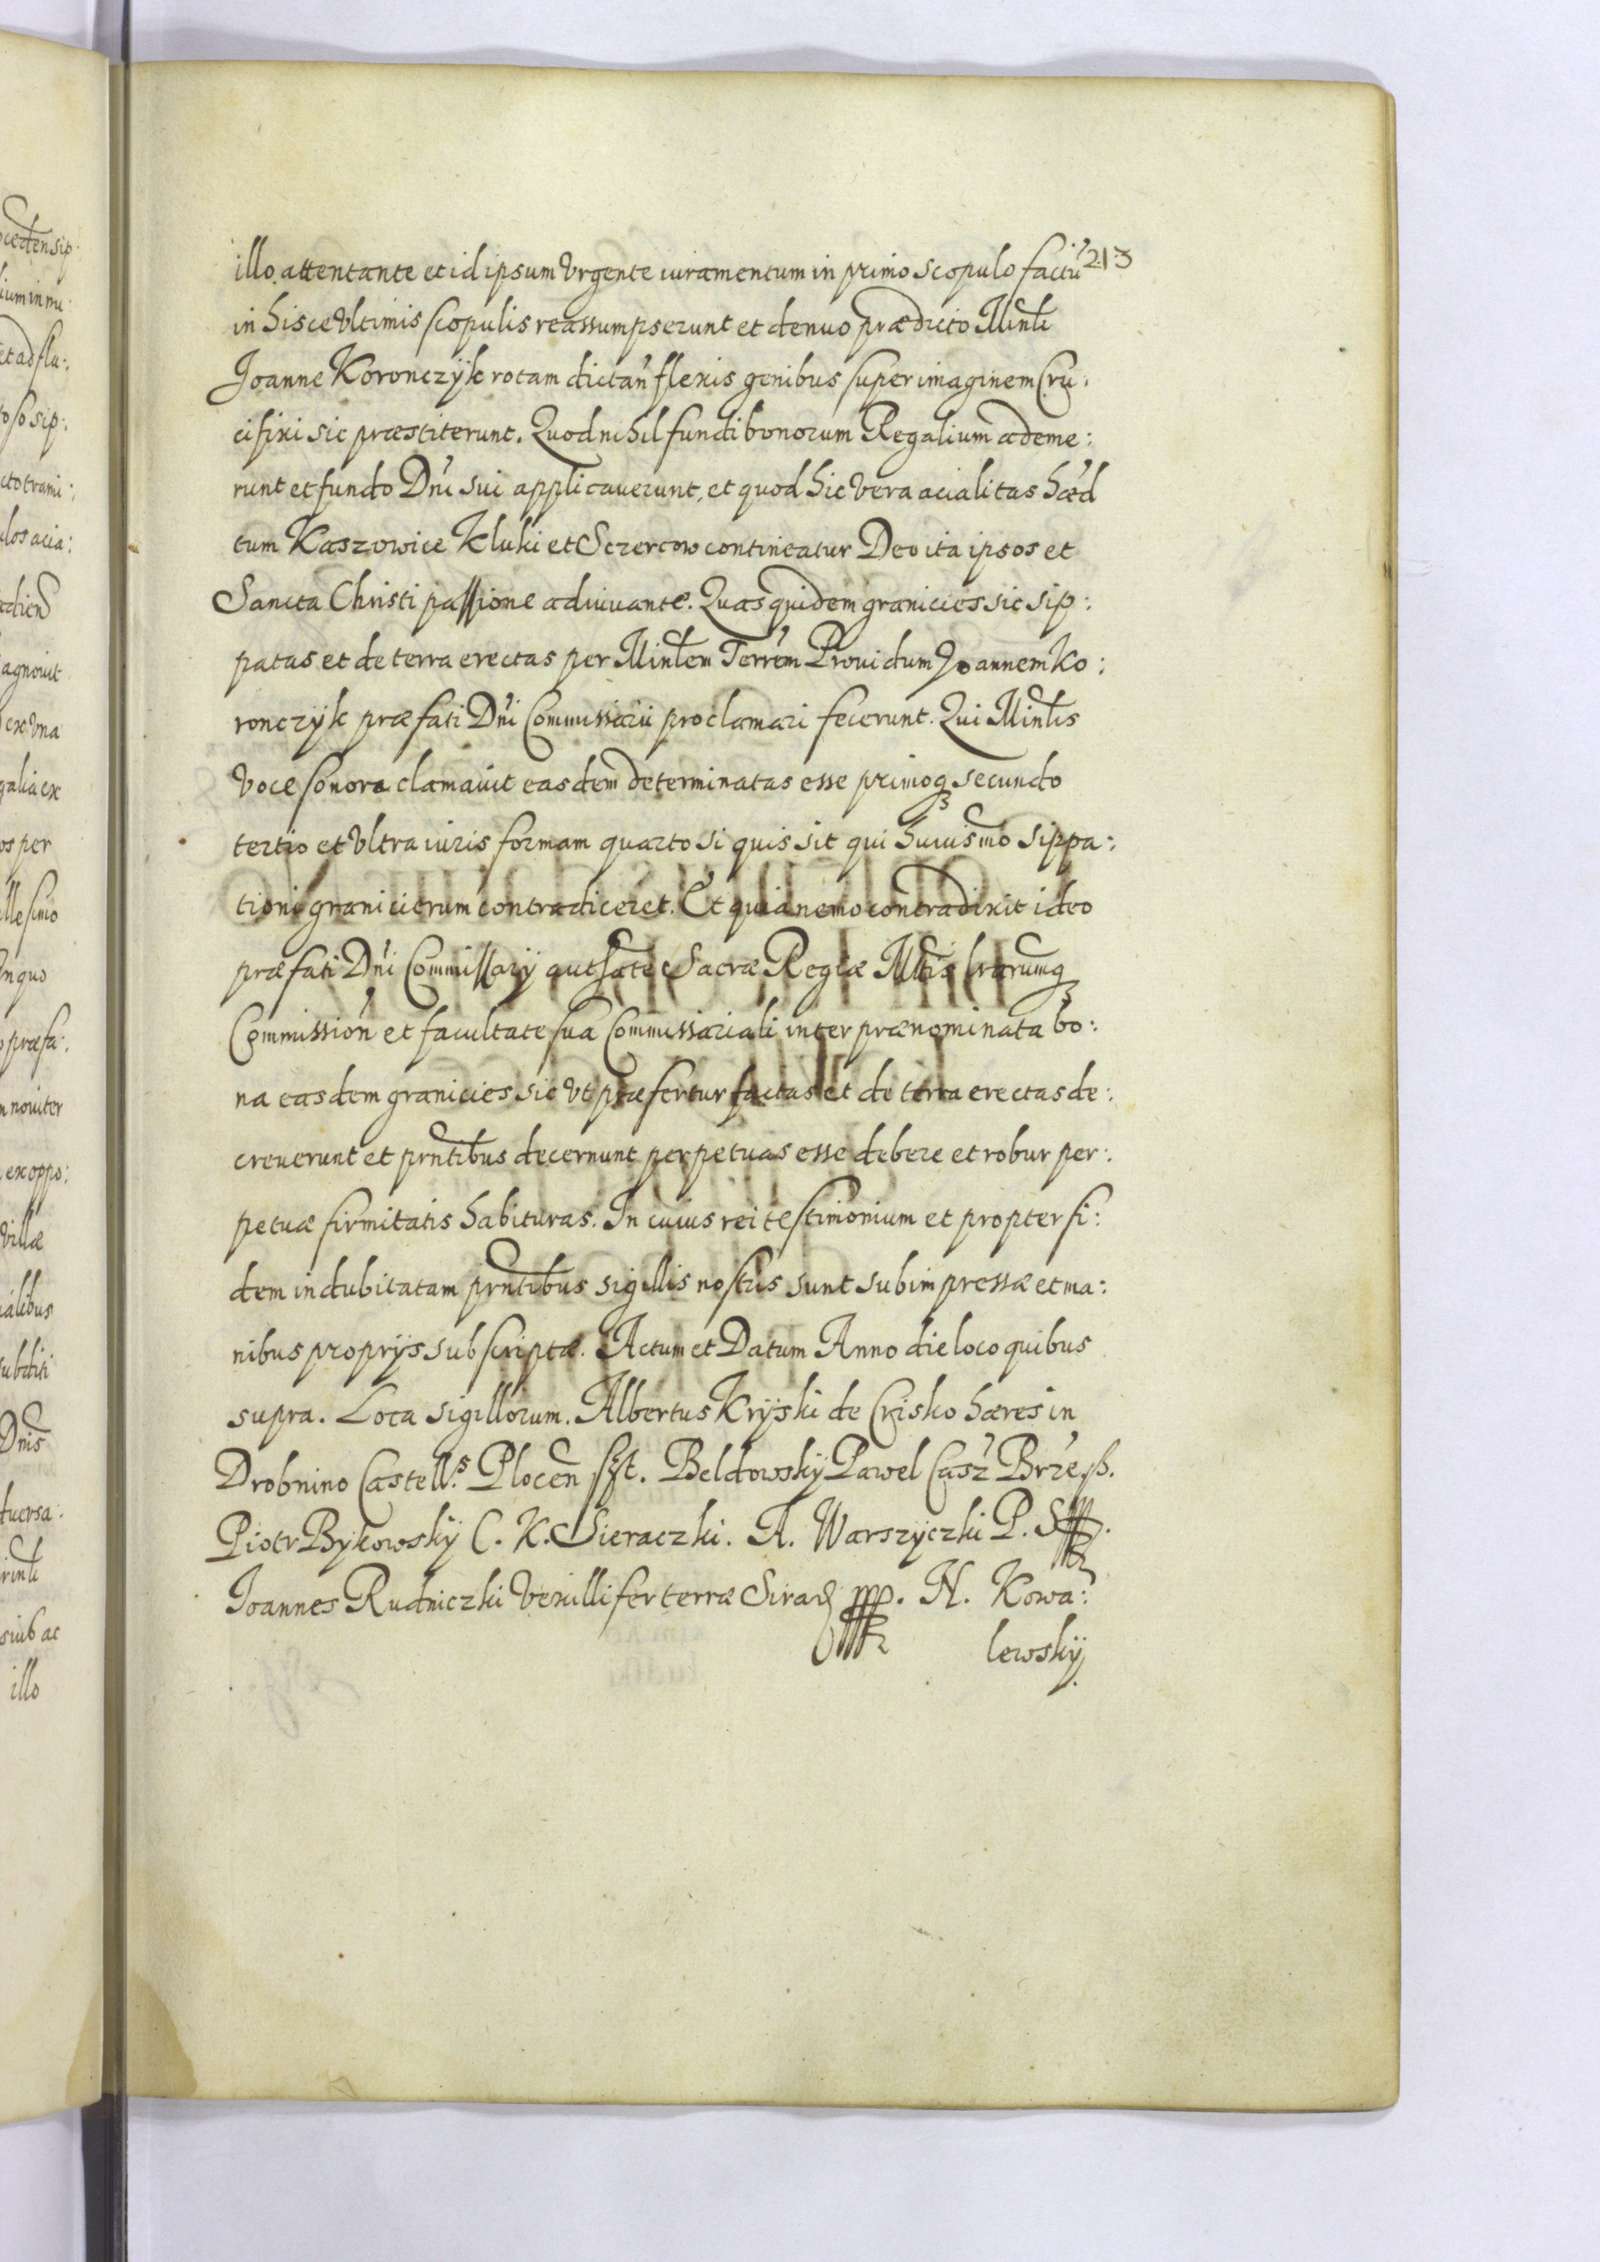 213
illo attentante et id ipsum Vrgente iuramentum in primo scopulo factu
in hisce Vltimis scopulis reassumpserunt et denuo prædicto Minli
Joanne Koronczyk rotam dictan flexis genibus super imaginem Cru:
cifixi sic præstiterunt. Quod nihil fundi bonorum Regalium ademe:
runt et fundo Dni sui applicaverunt, et quod hic vera acialitas hæd
tum Kaszowice Kluki et Sczercow contineatur Deo ita ipsos et
Sancta Christi passione adiuvante. Quas quidem granicies sic sip:
patas et de terra erectas per Minlem Terrem Providum Joannem Ko:
ronczyk præfati Dni Commissarii proclamari fecerunt. Qui Minlis
Voce sonora clamavit easdem determinatas esse primoq secundo
tertio et Vltra iuris formam quarto si quis sit qui huiusmo sippa:
tioni granicierum contradiceret. Et quia nemo contradixit ideo
præfati Dni Commissarij authate Sacræ Regiæ Mtis lrarumq
Commission et facultate sua Commissariali inter prænominata bo:
na easdem granicies sic Vt præfertur factas et de terra erectas de:
creverunt et prntibus decernunt perpetuas esse debere et robur per:
petuæ firmitatis habituras. In cuius rei testimonium et propter fi:
dem indubitatam prntibus sigillis nostris sunt subimpressæ et ma:
nibus proprijs subscriptæ. Actum et Datum Anno die loco quibus
supra. Loca sigillorum. Albertus Kryski de Crisko hæres in
Drobnino Castells. Plocen sst. Beldowskÿ Pawel Casz Brzes.
Piotr Bykowskÿ C. K. Sieraczki. A. Warszyczki P. S
Joannes Rudniczki Vexillifer terræ Sirad ppp. H. Kowa:
lewskÿ